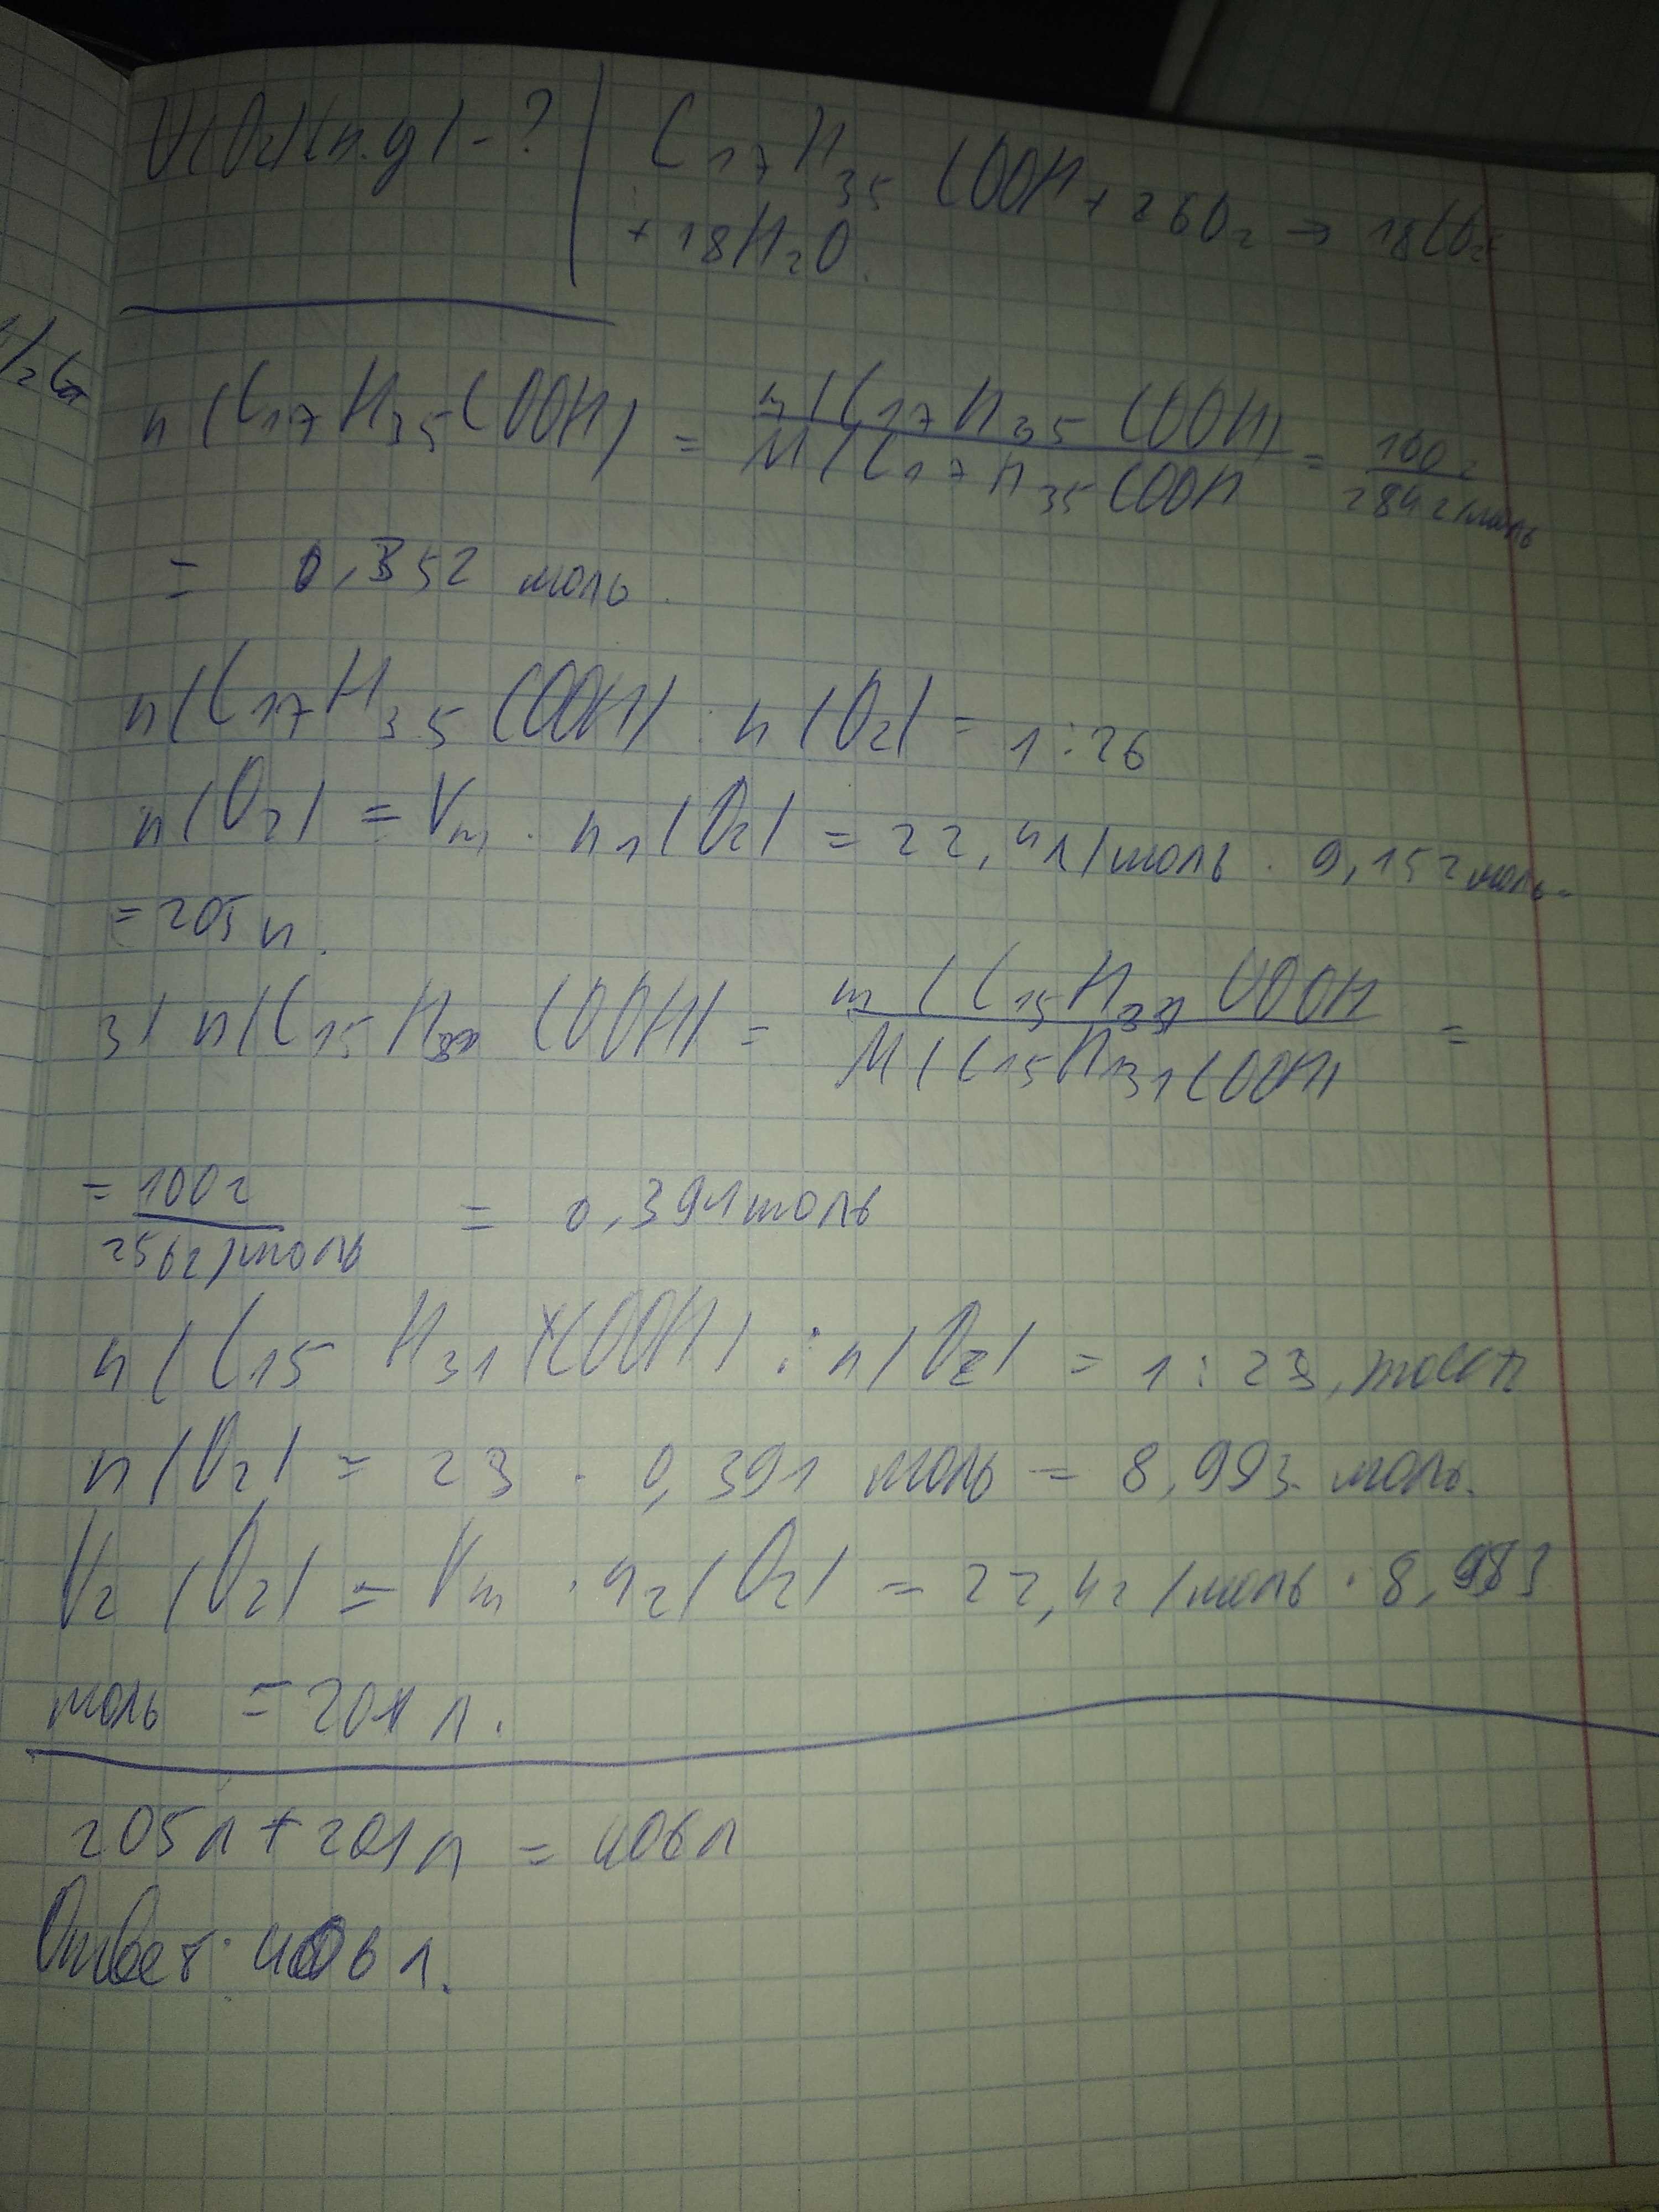 V(O₂)(н.у)-? | C₁₇H₃₅COOH + 26O₂ → 18CO₂
+ 18H₂O.
n(C₁₇H₃₅COOH) = m(C₁₇H₃₅COOH) / M(C₁₇H₃₅COOH = 100г / 284г/моль
= 0,352 моль.
n(C₁₇H₃₅COOH) : n(O₂) = 1:26
n(O₂) = Vm · n₁(O₂) = 22,4л/моль · 9,152моль=
=205л.
3) n(C₁₅H₃₁COOH) = m(C₁₅H₃₁COOH / M(C₁₅H₃₁COOH =
= 100г / 256г/моль = 0,391моль
n(C₁₅H₃₁COOH) : n(O₂) = 1:23,
n(O₂) = 23 · 0,391 моль = 8,993 моль.
V₂(O₂) = Vm · n₂(O₂) = 22,4г/моль · 8,993
моль = 201 л.
205л + 201л = 406л
Ответ: 406 л.